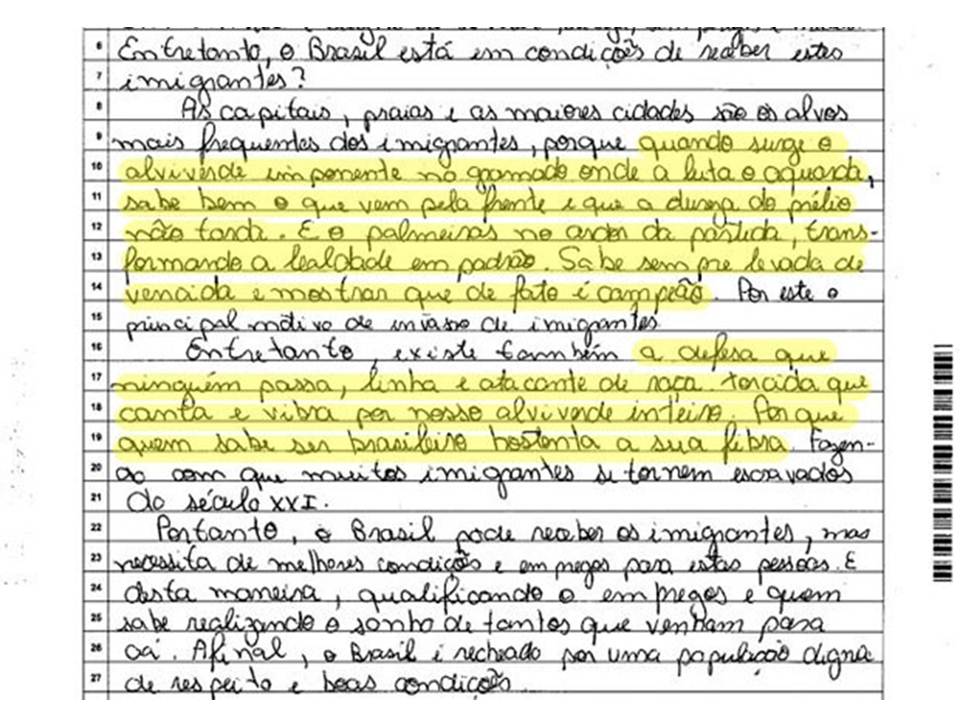 6 Entretanto, o Brasil está em condições de receber estes
7 imigrantes?
8 As capitais, praias e as maiores cidades são os alvos
9 mais frequentes dos imigrantes, porque quando surge o
10 alviverde imponente no gramado onde a luta o aguarda,
11 sabe bem o que vem pela frente e que a dureza do prélio
12 não tarda. E o palmeiras no ardor da partida, trans-
13 formando a lealdade em padrão. Sabe sempre levada de
14 vencida e mostrar que de fato é campeão. Por este o
15 principal motivo de invasão de imigrantes.
16 Entretanto, existe também a defesa que
17 ninguém passa, linha e atacante de raça. Torcida que
18 canta e vibra por nosso alviverde inteiro. Por que
19 quem sabe ser brasileiro hostenta a sua fibra. Fazen-
20 do com que muitos imigrantes se tornem escravados
21 do século XXI.
22 Portanto, o Brasil pode receber os imigrantes, mas
23 necessita de melhores condições e empregos para estas pessoas. E
24 desta maneira, qualificando o empregos e quem
25 sabe realizando o sonho de tantos que venham para
26 cá. Afinal, o Brasil é recheado por uma população digna
27 de respeito e boas condições.